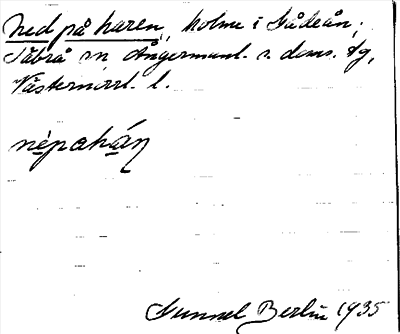 ned på haren, holme i Gådeån,
Säbrå sn Ångermanl. s. doms. tg,
Västernorrl. l.
nèpahán
Gunnel Berlin 1935